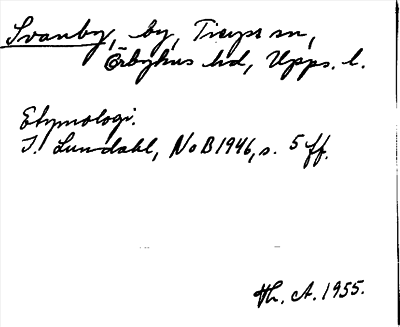 Svanby, by, Tierps sn,
Örbyhus hd, Upps. l.
Etymologi.
I. Lundahl, NoB 1946, s. 5 ff.
Hh. A. 1955.